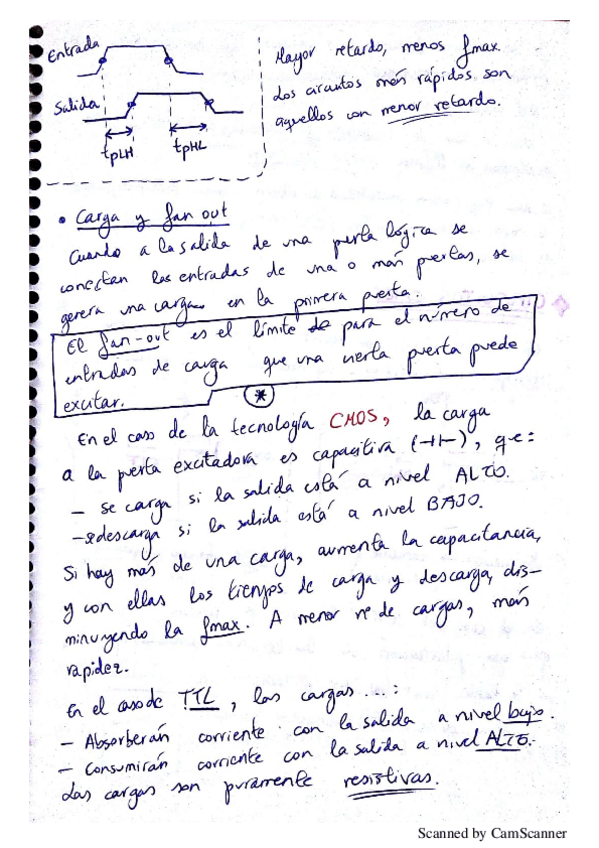 Entrada
Salida
tpLH
tpHL
Mayor retardo, menos fmax.
Los circuitos más rápidos son
aquellos con menor retardo.
• Carga y fan out
Cuando a la salida de una puerta lógica se
conectan las entradas de una o más puertas, se
genera una carga en la primera puerta.
El fan-out es el límite de para el número de
entradas de carga que una cierta puerta puede
excitar.
*
En el caso de la tecnología CMOS, la carga
a la puerta excitadora es capacitiva (⊣⊢), que:
- se carga si la salida está a nivel ALTO.
- se descarga si la salida está a nivel BAJO.
Si hay más de una carga, aumenta la capacitancia,
y con ellas los tiempos de carga y descarga, dis-
minuyendo la fmax. A menor nº de cargas, más
rapidez.
En el caso de TTL, las cargas ...:
- Absorberán corriente con la salida a nivel bajo.
- Consumirán corriente con la salida a nivel ALTO.
Las cargas son puramente resistivas.
Scanned by CamScanner